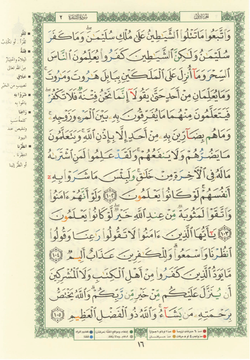 وَٱتَّبَعُوا۟ مَا تَتْلُوا۟ ٱلشَّيَٰطِينُ عَلَىٰ مُلْكِ سُلَيْمَٰنَ وَمَا كَفَرَ
سُلَيْمَٰنُ وَلَٰكِنَّ ٱلشَّيَٰطِينَ كَفَرُوا۟ يُعَلِّمُونَ ٱلنَّاسَ
ٱلسِّحْرَ وَمَآ أُنزِلَ عَلَى ٱلْمَلَكَيْنِ بِبَابِلَ هَٰرُوتَ وَمَٰرُوتَ
وَمَا يُعَلِّمَانِ مِنْ أَحَدٍ حَتَّىٰ يَقُولَآ إِنَّمَا نَحْنُ فِتْنَةٌ فَلَا تَكْفُرْ
فَيَتَعَلَّمُونَ مِنْهُمَا مَا يُفَرِّقُونَ بِهِۦ بَيْنَ ٱلْمَرْءِ وَزَوْجِهِۦ
وَمَا هُم بِضَآرِّينَ بِهِۦ مِنْ أَحَدٍ إِلَّا بِإِذْنِ ٱللَّهِ وَيَتَعَلَّمُونَ
مَا يَضُرُّهُمْ وَلَا يَنفَعُهُمْ وَلَقَدْ عَلِمُوا۟ لَمَنِ ٱشْتَرَىٰهُ
مَا لَهُۥ فِى ٱلْءَاخِرَةِ مِنْ خَلَٰقٍ وَلَبِئْسَ مَا شَرَوْا۟ بِهِۦٓ
أَنفُسَهُمْ لَوْ كَانُوا۟ يَعْلَمُونَ ١٠٢ وَلَوْ أَنَّهُمْ ءَامَنُوا۟
وَٱتَّقَوْا۟ لَمَثُوبَةٌ مِّنْ عِندِ ٱللَّهِ خَيْرٌ لَّوْ كَانُوا۟ يَعْلَمُونَ
١٠٣ يَٰٓأَيُّهَا ٱلَّذِينَ ءَامَنُوا۟ لَا تَقُولُوا۟ رَٰعِنَا وَقُولُوا۟
ٱنظُرْنَا وَٱسْمَعُوا۟ وَلِلْكَٰفِرِينَ عَذَابٌ أَلِيمٌ ١٠٤
مَّا يَوَدُّ ٱلَّذِينَ كَفَرُوا۟ مِنْ أَهْلِ ٱلْكِتَٰبِ وَلَا ٱلْمُشْرِكِينَ
أَن يُنَزَّلَ عَلَيْكُم مِّنْ خَيْرٍ مِّن رَّبِّكُمْ وَٱللَّهُ يَخْتَصُّ
بِرَحْمَتِهِۦ مَن يَشَآءُ وَٱللَّهُ ذُو ٱلْفَضْلِ ٱلْعَظِيمِ ١٠٥
١٦